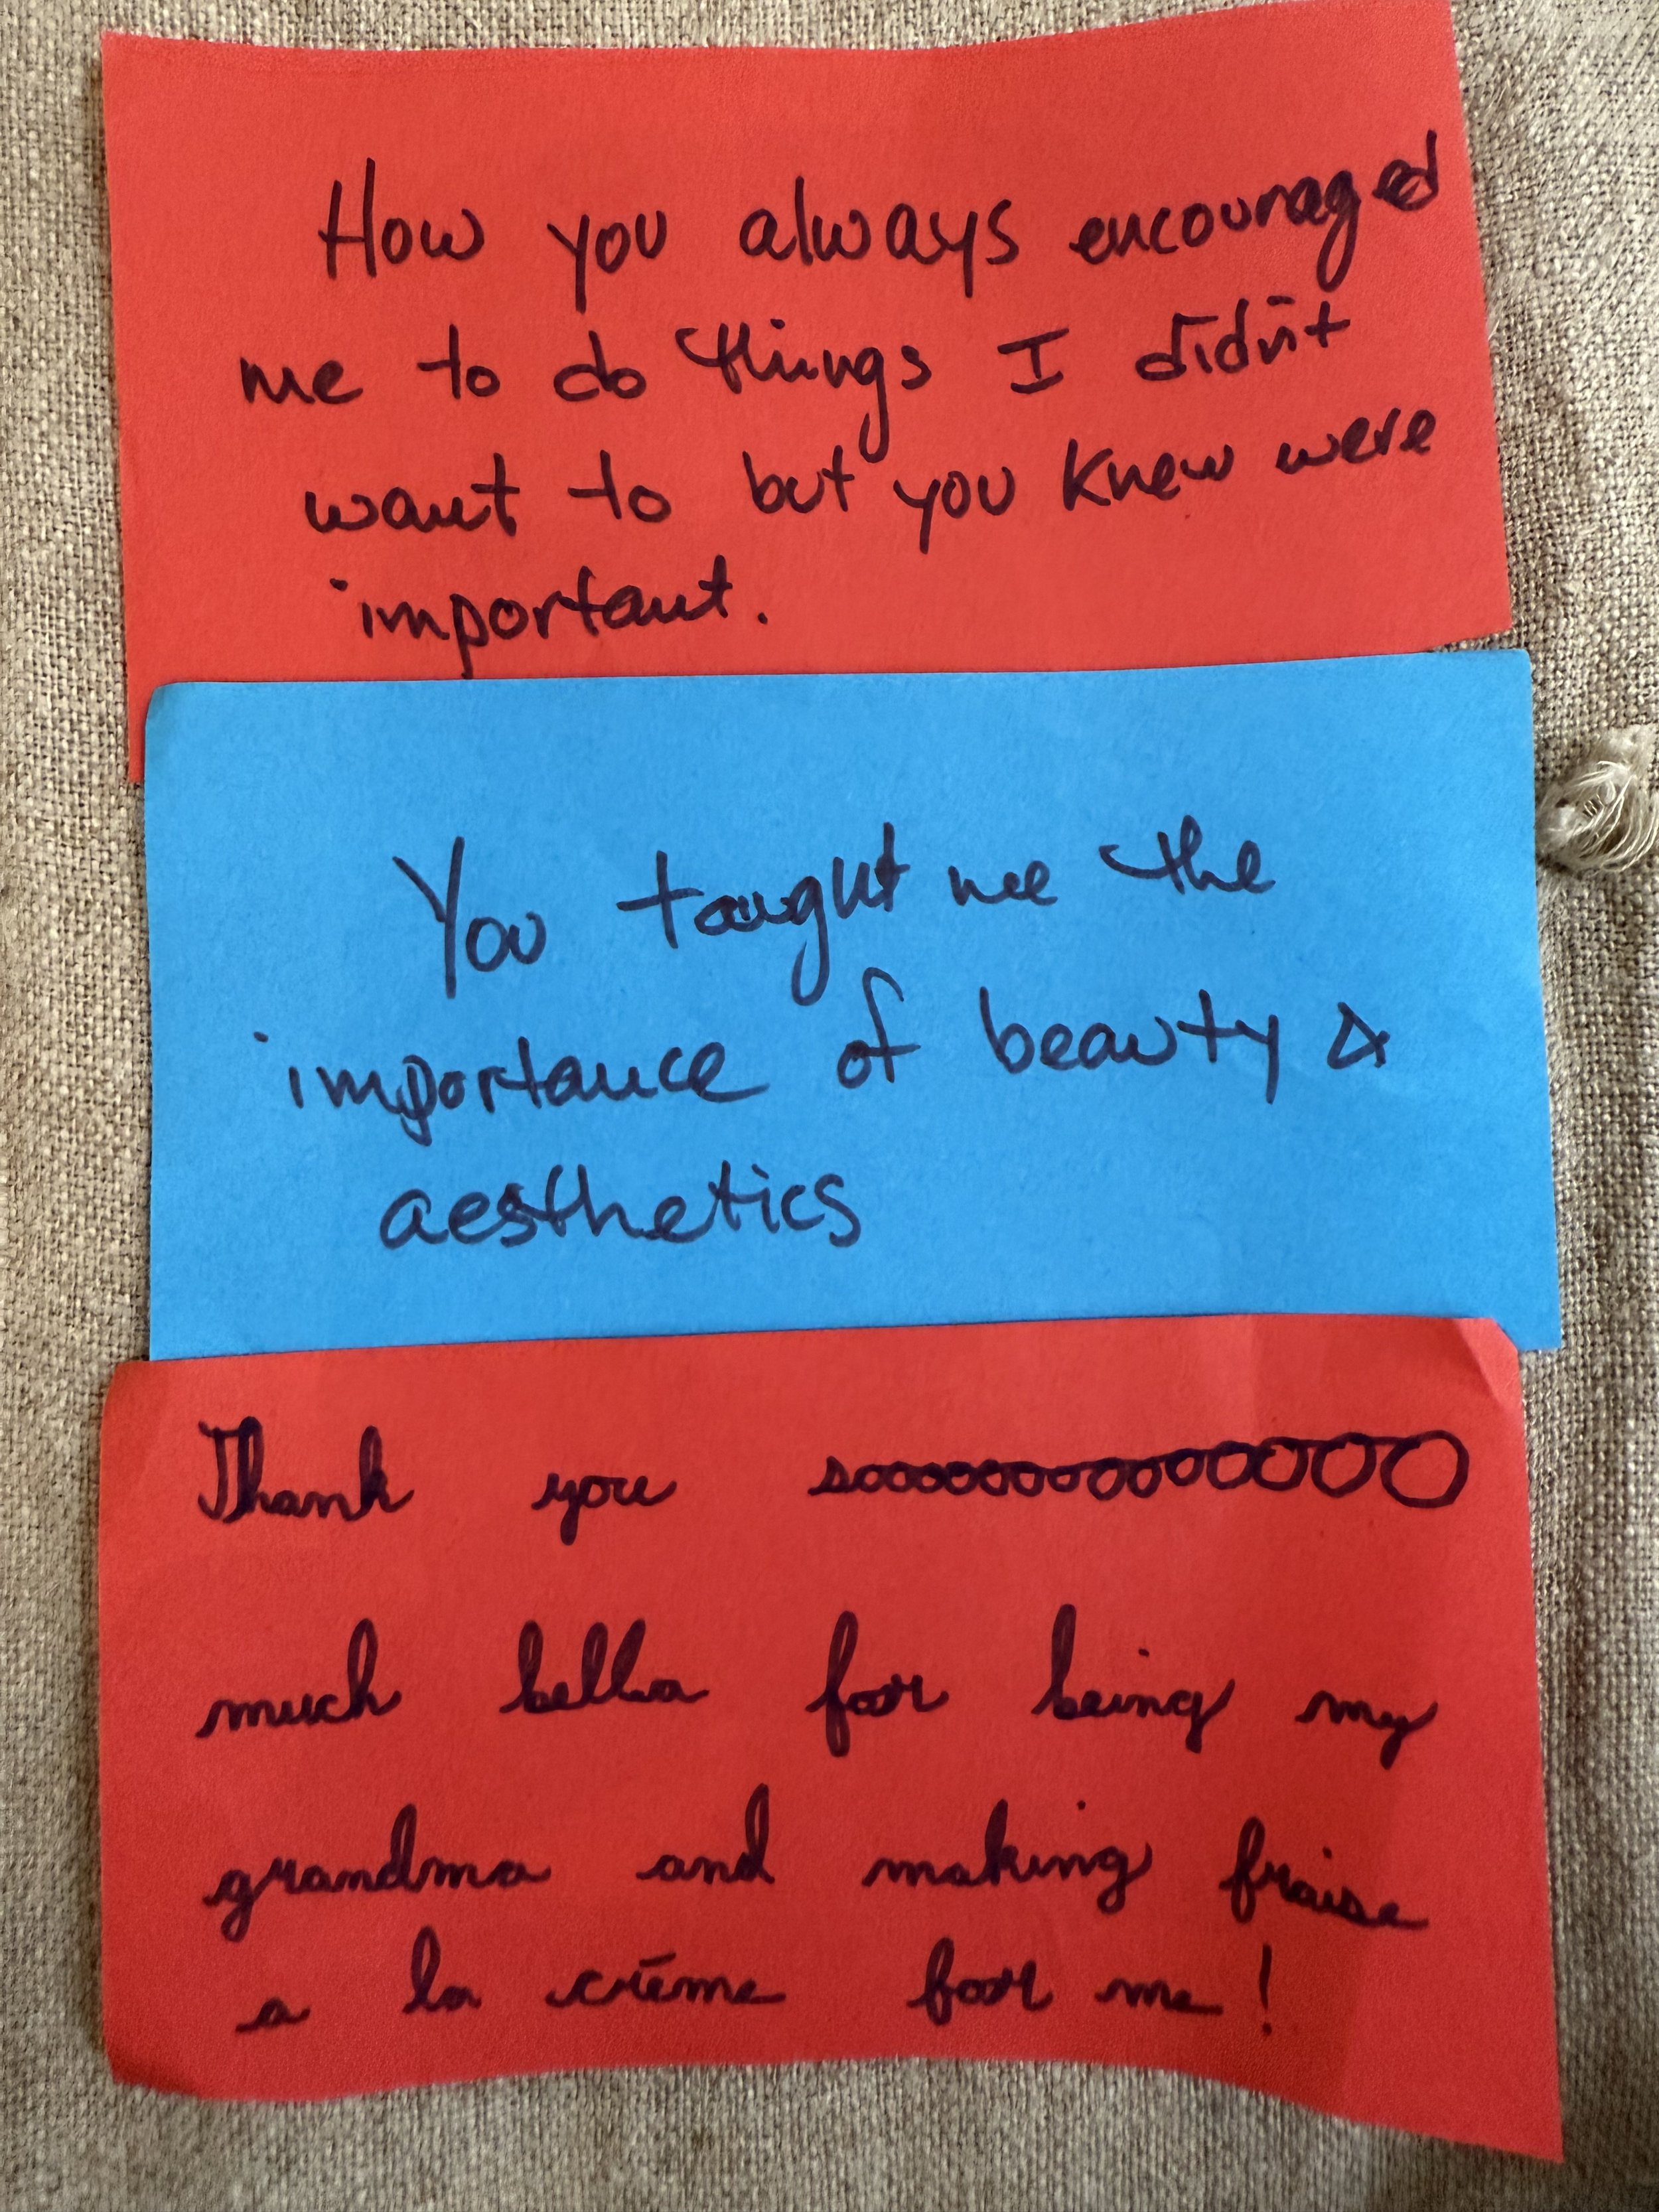 How you always encouraged
me to do things I didn't
want to but you knew were
important.
You taught me the
importance of beauty &
aesthetics
Thank you soooooooooooooooo
much bella for being my
grandma and making fraise
a la crème for me!